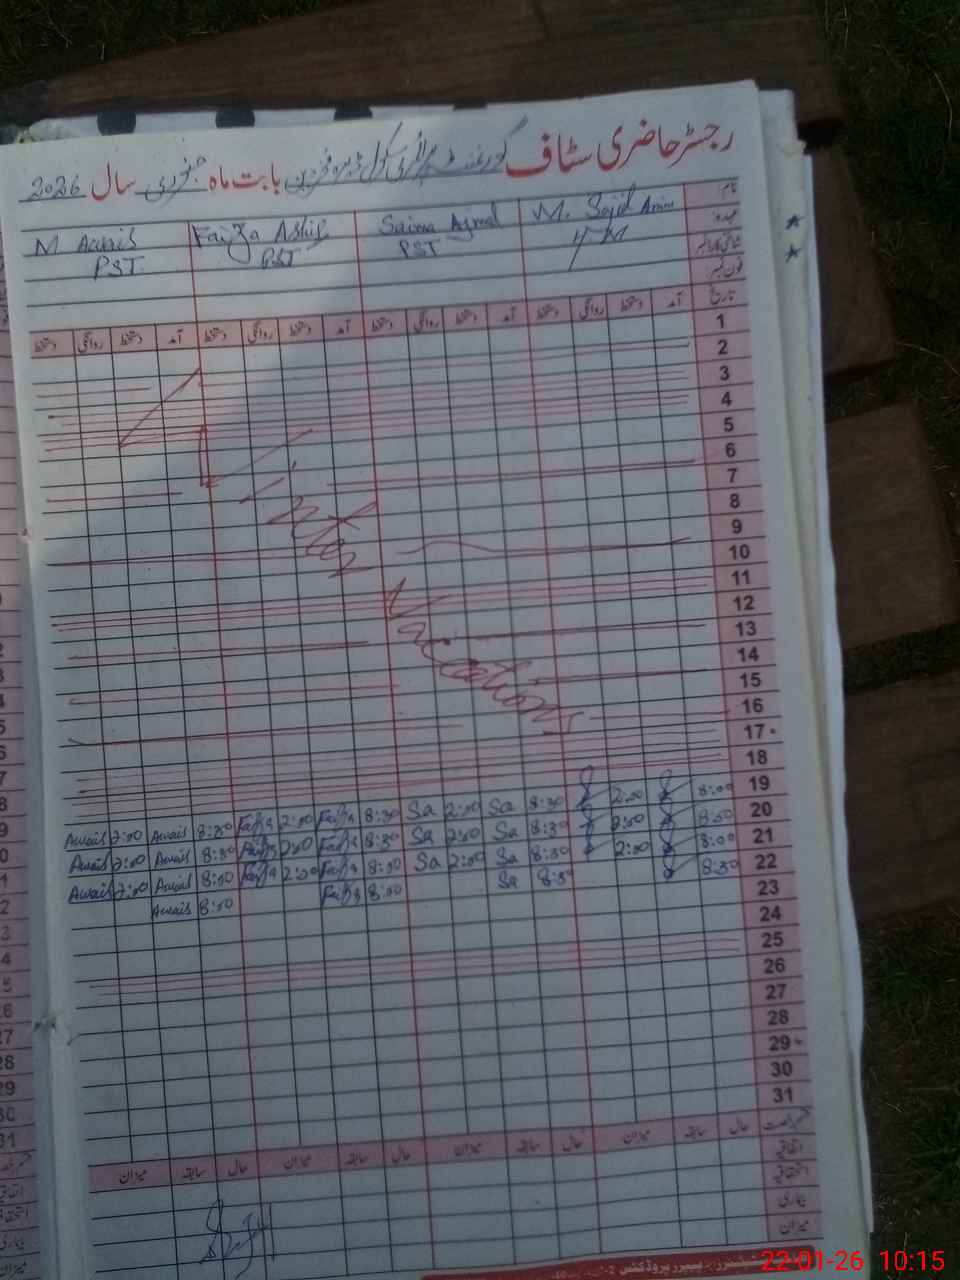 رجسٹر حاضری سٹاف گورنمنٹ پرائمری سکول بابت ماہ جنوری سال 2026
نام
M. Sajid Amin
Saima Ajmal
Faiza Ashiq
M Awais
عہدہ:
PST
PST
PST
شناختی کارڈ نمبر
فون نمبر:
تاریخ آمد دستخط روانگی دستخط آمد دستخط روانگی دستخط آمد دستخط روانگی دستخط آمد دستخط روانگی دستخط
1
2
3
4
5
6
7
8
9
10
11
12
13
14
15
16
17
18
Winter Vacations
19 8:00 2:00 8:30 Sa 2:00 Sa 8:30 Faiza 2:00 Faiza 8:30 Awais 2:00 Awais
20 8:30 2:00 8:30 Sa 2:00 Sa 8:30 Faiza 2:00 Faiza 8:30 Awais 2:00 Awais
21 8:00 2:00 8:30 Sa 2:00 Sa 8:00 Faiza 2:00 Faiza 8:00 Awais 2:00 Awais
22 8:30 8:30 Sa 8:00 Faiza 8:00 Awais
23
24
25
26
27
28
29
30
31
حال سابقہ میزان حال سابقہ میزان حال سابقہ میزان حال سابقہ میزان
اتفاقیہ
استحقاقیہ
بیماری
میزان
پیپر پروڈکٹس
22-01-26 10:15